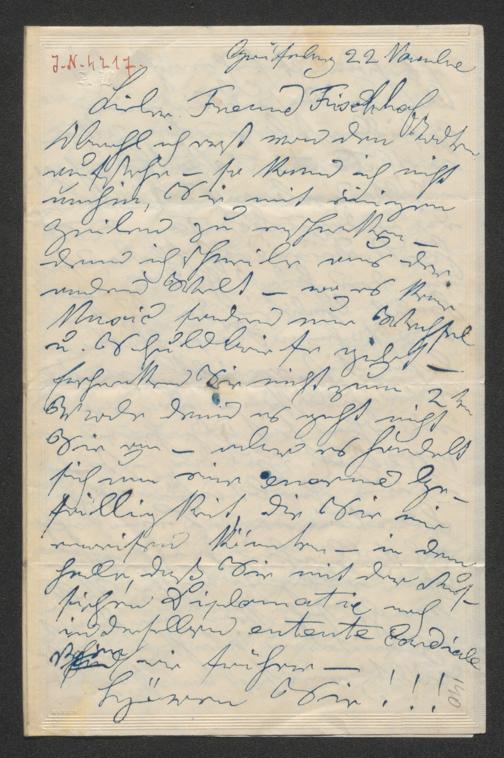 J.N. 4217.
22 November
Lieber Freund Fischhof
Obwohl ich erst von den Todten
aufstehe – so kann ich nicht
umhin, Sie mit einigen
Zeilen zu erschrecken –
denn ich schreibe aus der
andern Welt – wo es keine
Music sondern nur Wechsel
u. Schuldbriefe giebt –
Erschrecken Sie nicht zum 2ten
Male denn es geht nicht
Sie an – aber es handelt
sich um eine enorme Ge-
fälligkeit, die Sie mir
erweisen könnten – in dem
Falle, daß Sie mit der Russ-
ischen Diplomatie noch
in derselben entente Cordiale
wie früher –
Hören Sie !!!
140